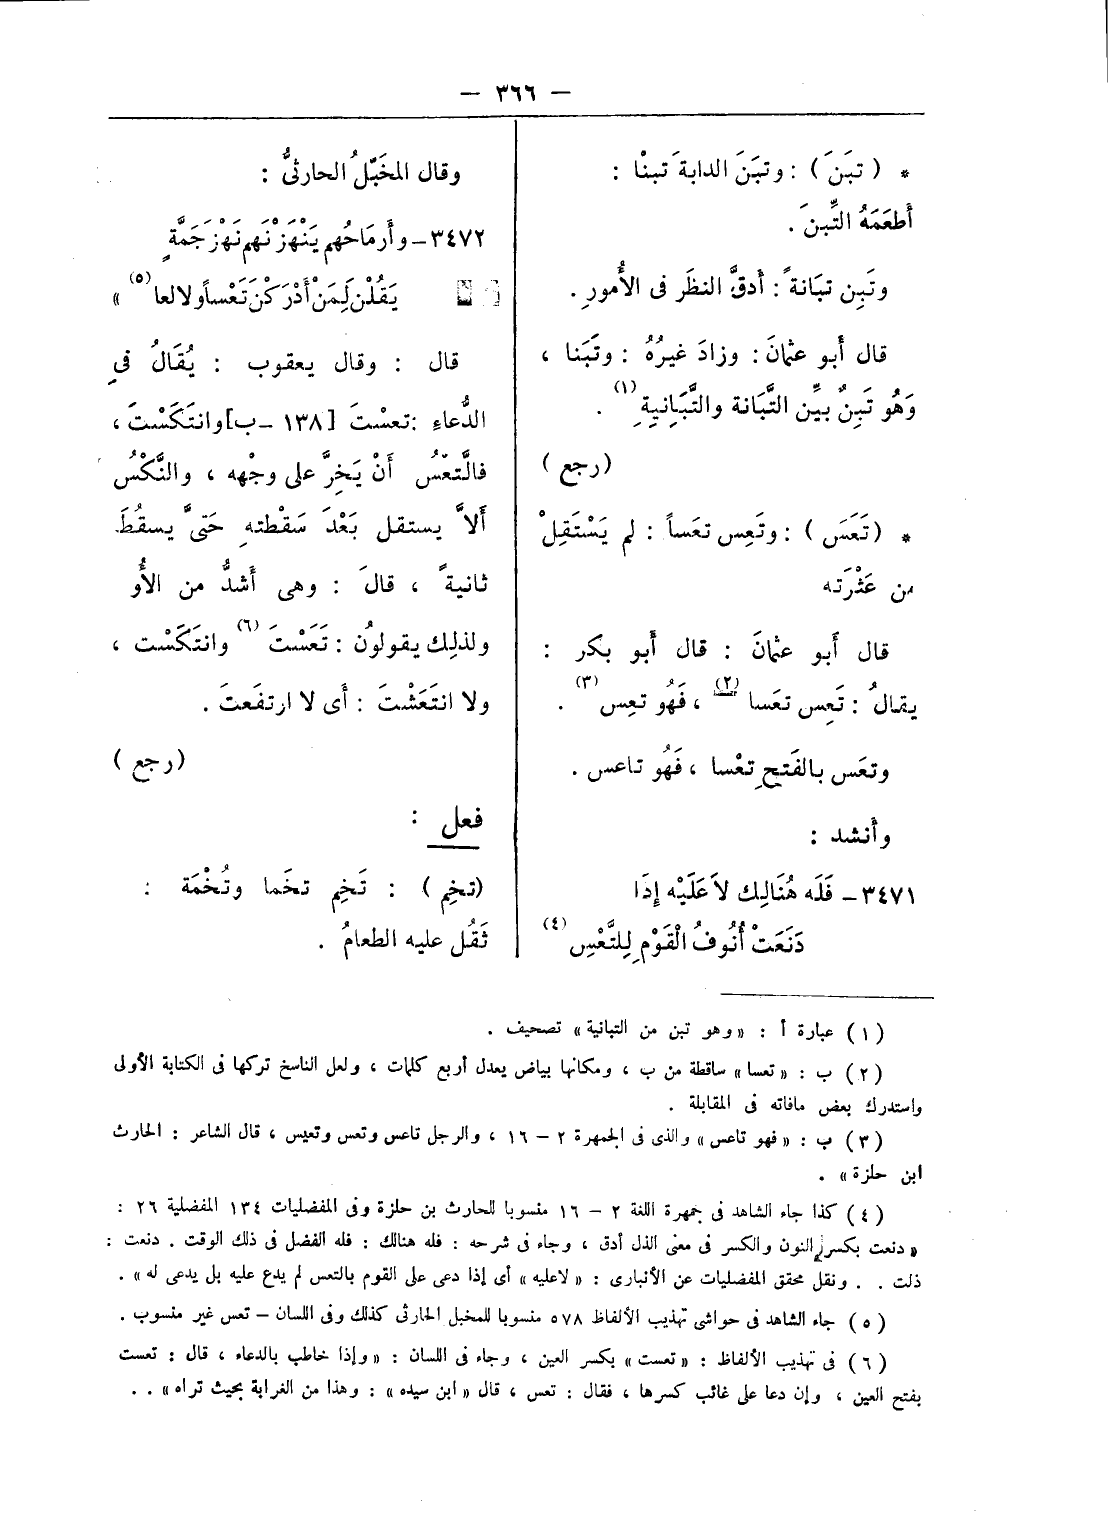 — ٣٦٦ —
* ( تبَنَ ) : وتبَنَ الدابةَ تبنْا :
أطعَمَهُ التِّبنَ .
وتَبِن تبَانةً : أدقَّ النظَر فى الأُمورِ .
قال أبو عثمانَ : وزادَ غيرُهُ : وتَبَنا ،
وَهُو تَبِنٌ بيِّن التَّبانة والتَّبَانِيةِ (١) .
( رجع )
* ( تَعَسَ ) : وتَعِس تعَساً : لم يَسْتَقِلْ
من عَثْرَته
قال أَبو عثمانَ : قال أَبو بكر :
يقالُ : تَعِس تعَسا (٢) ، فَهُو تعِس (٣) .
وتعَس بالفَتحِ تعْسا ، فَهُو تاعس .
وأنشد :
٣٤٧١ – فَلَه هُنَالِك لاَ عَلَيْه إِذَا
دَنَعَتْ أُنُوفُ الْقَوْمِ لِلتَّعْسِ (٤)
وقال المخَبّلُ الحارثىُّ :
٣٤٧٢ – وأَرمَاحُهم يَنْهَزْنَهم نَهْزَ جَمَّةٍ
يَقُلْن لِمَنْ أَدْرَكْنَ تَعْساً ولا لعا (٥) »
قال : وقال يعقوب : يُقَالُ فى
الدُّعاءِ : تعسْتَ [ ١٣٨ – ب ] وانتَكَسْتَ ،
فالتَّعْسُ أَنْ يَخِرَّ على وجْهه ، والنَّكْسُ
أَلاَّ يستقل بَعْدَ سَقْطتهِ حَتىَّ يسقُطَ
ثانيةً ، قالَ : وهى أَشدُّ من الأُو
ولذلِك يقولونُ : تَعَسْتَ (٦) وانتَكَسْت ،
ولا انتَعَشْتَ : أَى لا ارتفَعتَ .
( رجع )
فعل :
( تخِم ) : تَخِم تخَما وتُخْمَة :
ثَقُل عليه الطعامُ .
( ١ ) عبارة أ : « وهو تبن من التبانية » تصحيف .
( ٢ ) ب : « تعسا » ساقطة من ب ، ومكانها بياض يعدل أربع كلمات ، ولعل الناسخ تركها فى الكتابة الأولى
واستدرك بعض مافاته فى المقابلة .
( ٣ ) ب : « فهو تاعس » والذى فى الجمهرة ٢ – ١٦ ، والرجل تاعس وتعس وتعيس ، قال الشاعر : الحارث
ابن حلزة » .
( ٤ ) كذا جاء الشاهد فى جمهرة اللغة ٢ – ١٦ منسوبا للحارث بن حلزة وفى المفضليات ١٣٤ المفضلية ٢٦ :
« دنعت بكسر النون والكسر فى معنى الذل أدق ، وجاء فى شرحه : فله هنالك : فله الفضل فى ذلك الوقت . دنعت :
ذلت . . ونقل محقق المفضليات عن الأنبارى : « لاعليه » أى إذا دعى على القوم بالتعس لم يدع عليه بل يدعى له » .
( ٥ ) جاء الشاهد فى حواشى تهذيب الألفاظ ٥٧٨ منسوبا للمخبل الحارثى كذلك وفى اللسان – تعس غير منسوب .
( ٦ ) فى تهذيب الألفاظ : « تعست » بكسر العين ، وجاء فى اللسان : « وإذا خاطب بالدعاء ، قال : تعست
بفتح العين ، وإن دعا على غائب كسرها ، فقال : تعس ، قال « ابن سيده » : وهذا من الغرابة بحيث تراه » . .